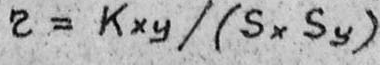 r = Kxy/(Sx Sy)